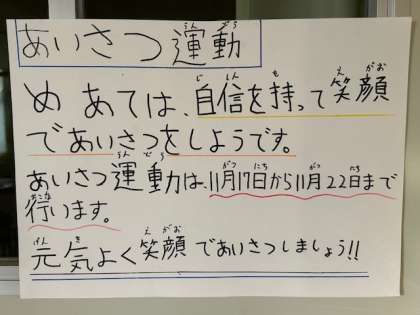 あいさつ運動
めあては、自信を持って笑顔
であいさつをしようです。
あいさつ運動は、11月17日から11月22日まで
行います。
元気よく笑顔であいさつしましょう!!